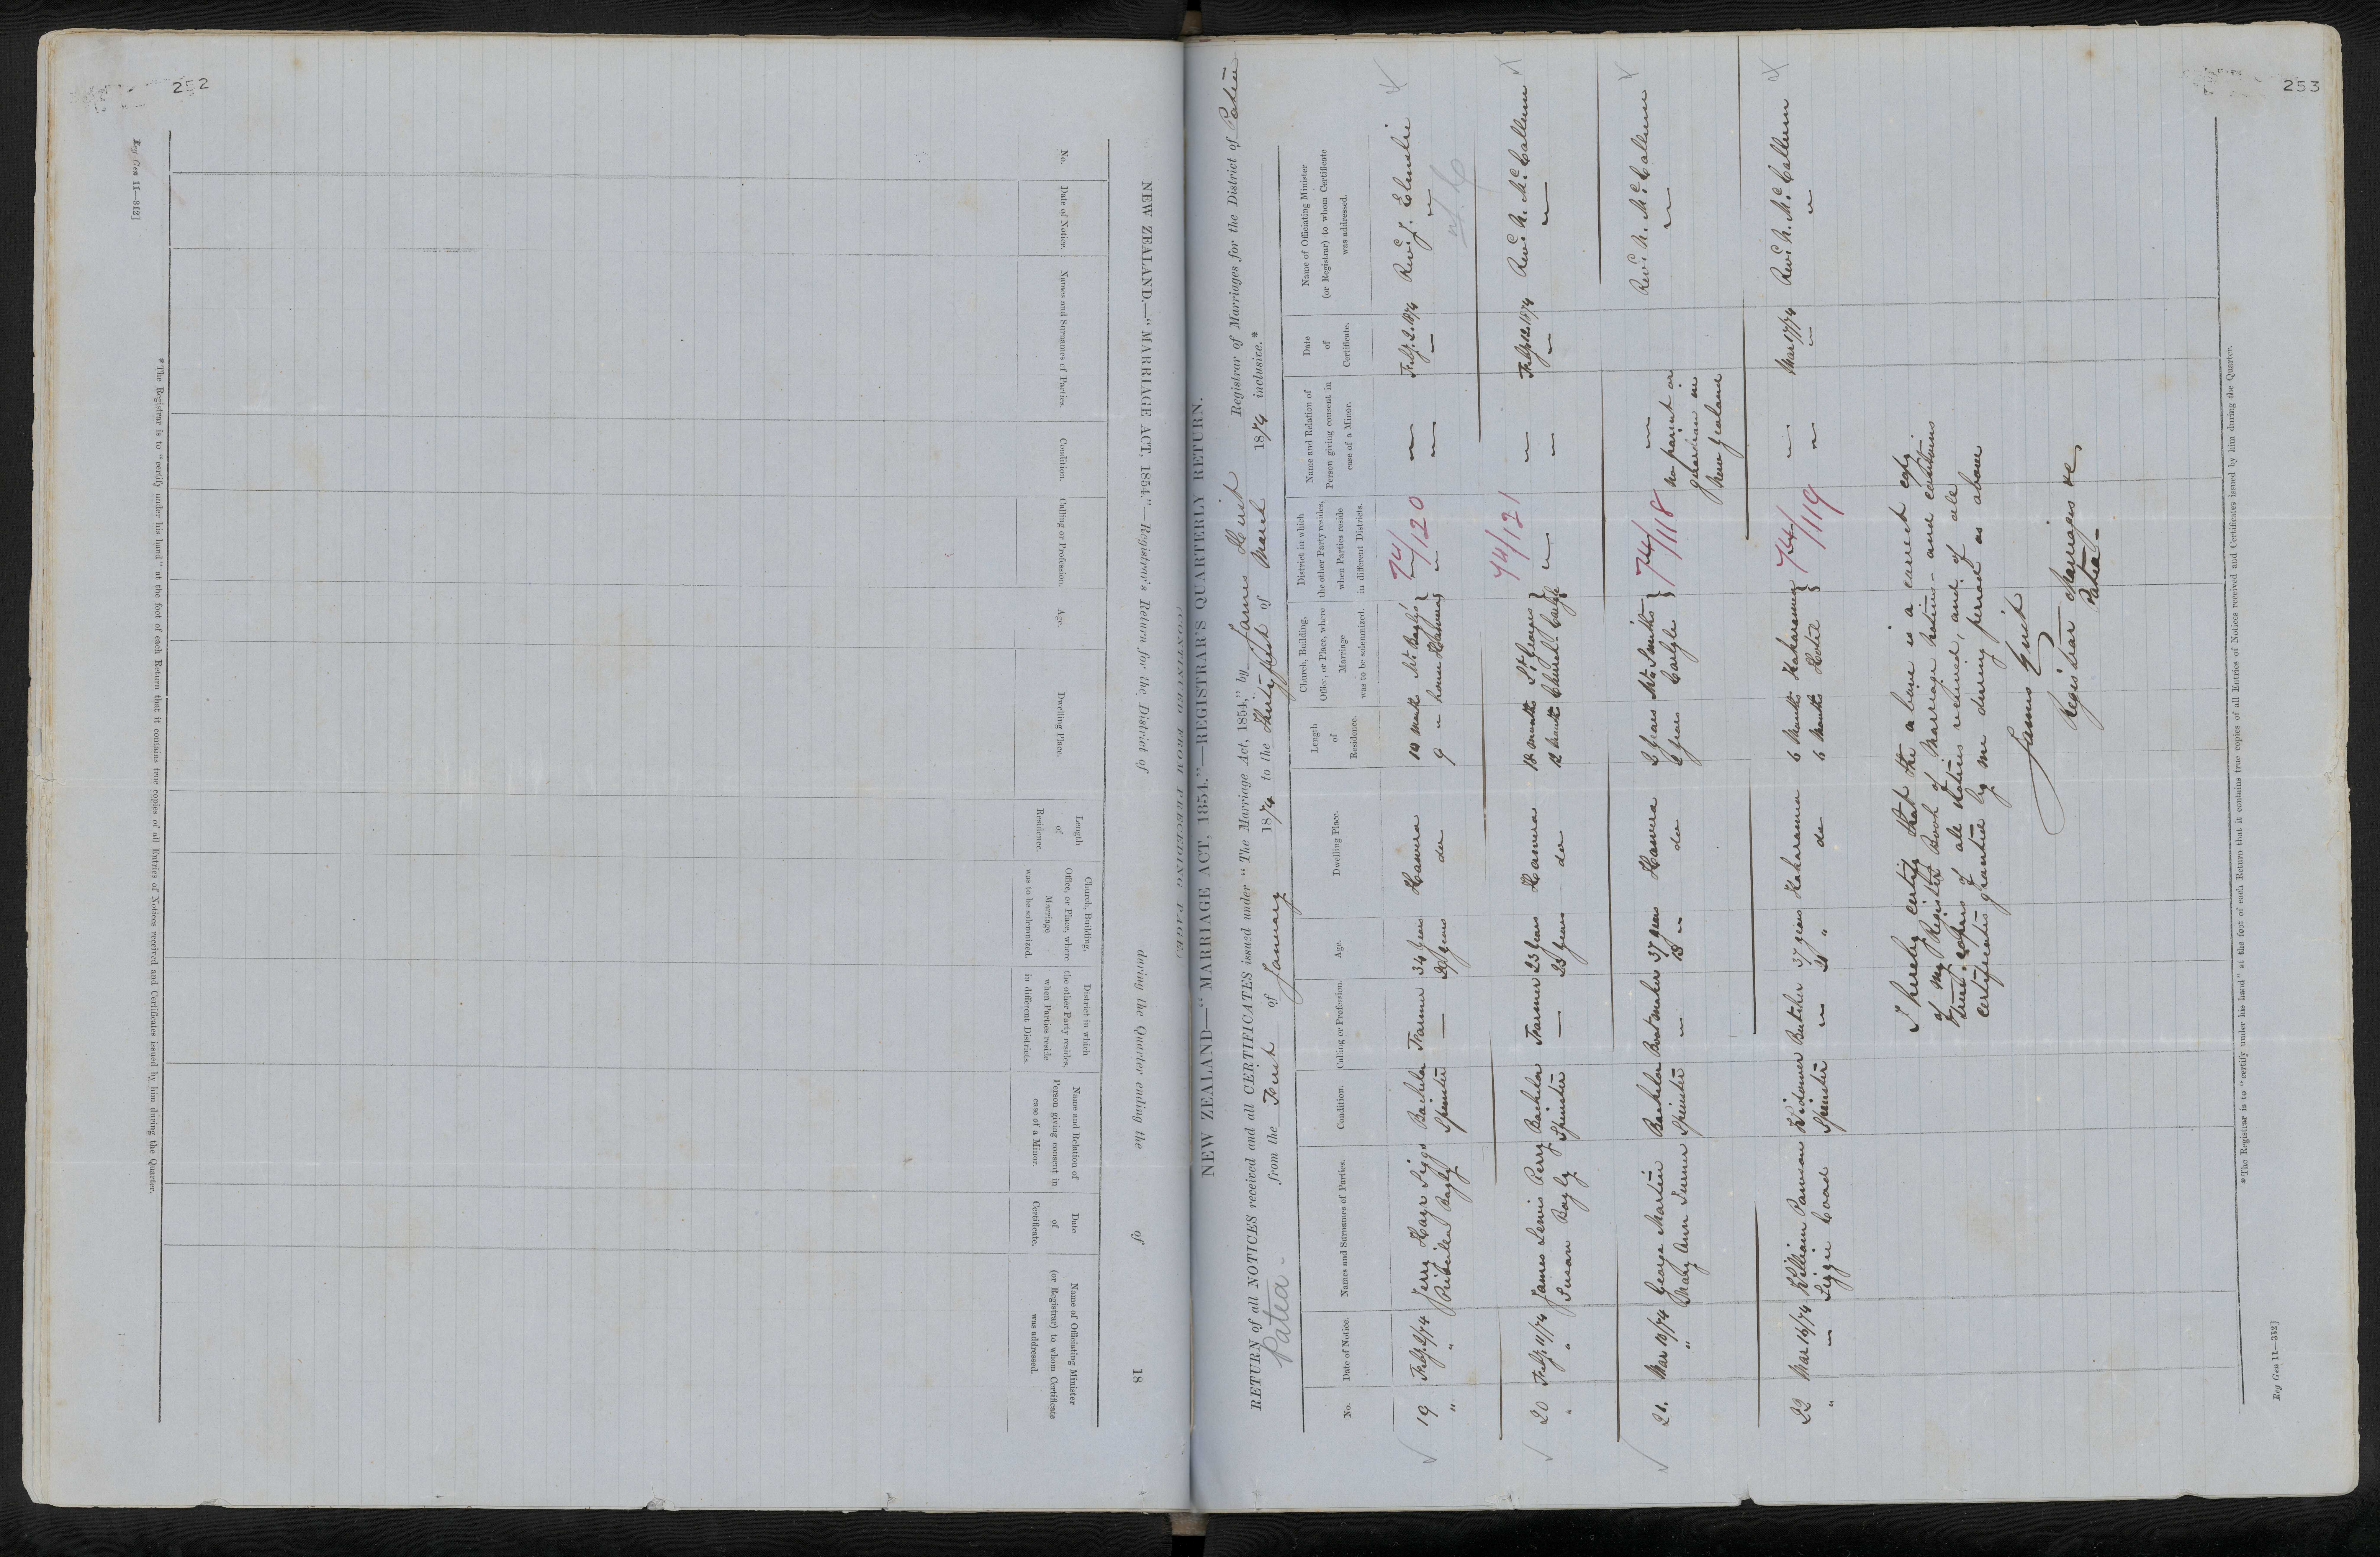 252
NEW ZEALAND.—"MARRIAGE ACT, 1854."—Registrar's Return for the District of during the Quarter ending the of 18
No.
Date of Notice.
Names and Surnames of Parties.
Condition.
Calling or Profession.
Age.
Dwelling Place.
Length of Residence.
Church, Building, Office, or Place, where Marriage was to be solemnized.
District in which the other Party resides, when Parties reside in different Districts.
Name and Relation of Person giving consent in case of a Minor.
Date of Certificate.
Name of Officiating Minister (or Registrar) to whom Certificate was addressed.
*The Registrar is to "certify under his hand" at the foot of each Return that it contains true copies of all Entries of Notices received and Certificates issued by him during the Quarter.
Reg Gen 11—312]
253
NEW ZEALAND—"MARRIAGE ACT, 1854."—REGISTRAR'S QUARTERLY RETURN.
RETURN of all NOTICES received and all CERTIFICATES issued under "The Marriage Act, 1854," by James Hirst Registrar of Marriages for the District of Patea
Patea - from the First of January 1874 to the Thirty first of March 1874 inclusive.*
No.
Date of Notice.
Names and Surnames of Parties.
Condition.
Calling or Profession.
Age.
Dwelling Place.
Length of Residence.
Church, Building, Office, or Place, where Marriage was to be solemnized.
District in which the other Party resides, when Parties reside in different Districts.
Name and Relation of Person giving consent in case of a Minor.
Date of Certificate.
Name of Officiating Minister (or Registrar) to whom Certificate was addressed.
19 Feby. 2/74 Jerry Hayr Bachelor Farmer 34 years Hawera 10 month Mr. Bayly's 74/120 — Feby. 2. 1874 Revd. J. Elmslie
" " Bayly Spinster — 20 years do 9 " house Hawera — — "
20 Feby. 11/74 James Lewis Perry Bachelor Farmer 23 years Hawera 18 month St. Georges 74/121 — Feby 12. 1874 Revd. N. McCallum
" " Susan Bayly Spinster — 23 years do 12 month Church — — —
21. Mar 10/74 George Martin Bachelor Bootmaker 37 years Hawera 3 years Mr. Smiths 74/118 — Revd. N. McCallum
" Mary Ann Turner Spinster " 18 " do 6 years no parent or
guardian in
New Zealand
22 Mar 16/74 William Pannian Widower Butcher 37 years Kakaramea 6 months Kakaramea 74/119 — Mar 17/74 Revd. N. McCallum
" — Lizzie Coad Spinster — 21 " do 6 months Hotel — " "
I hereby certify that the above is a correct copy
of my Register Book of Marriage notices and contains
true copies of all Notices received, and of all
certificates granted by me during period as above
James Hirst
Registrar Marriages &c
Patea -
*The Registrar is to "certify under his hand" at the foot of each Return that it contains true copies of all Entries of Notices received and Certificates issued by him during the Quarter.
Reg Gen 11—312]